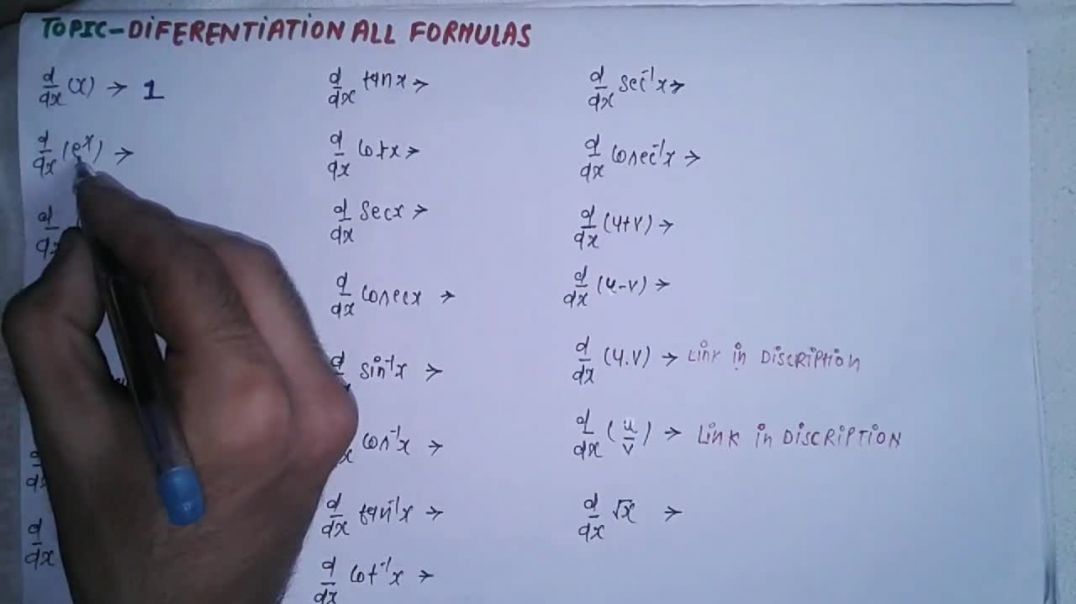 TOPIC-DIFERENTIATION ALL FORMULAS
d/dx (x) → 1
d/dx (e^x) →
d
dx
d
dx
d/dx tan x →
d/dx cot x →
d/dx Sec x →
d/dx cosec x →
d/dx sin⁻¹x →
cos⁻¹x →
d/dx tan⁻¹x →
d/dx cot⁻¹x →
d/dx sec⁻¹x →
d/dx cosec⁻¹x →
d/dx (u+v) →
d/dx (u-v) →
d/dx (u.v) → LINK in DISCRIPTION
d/dx (u/v) → LINK in DISCRIPTION
d/dx √x →